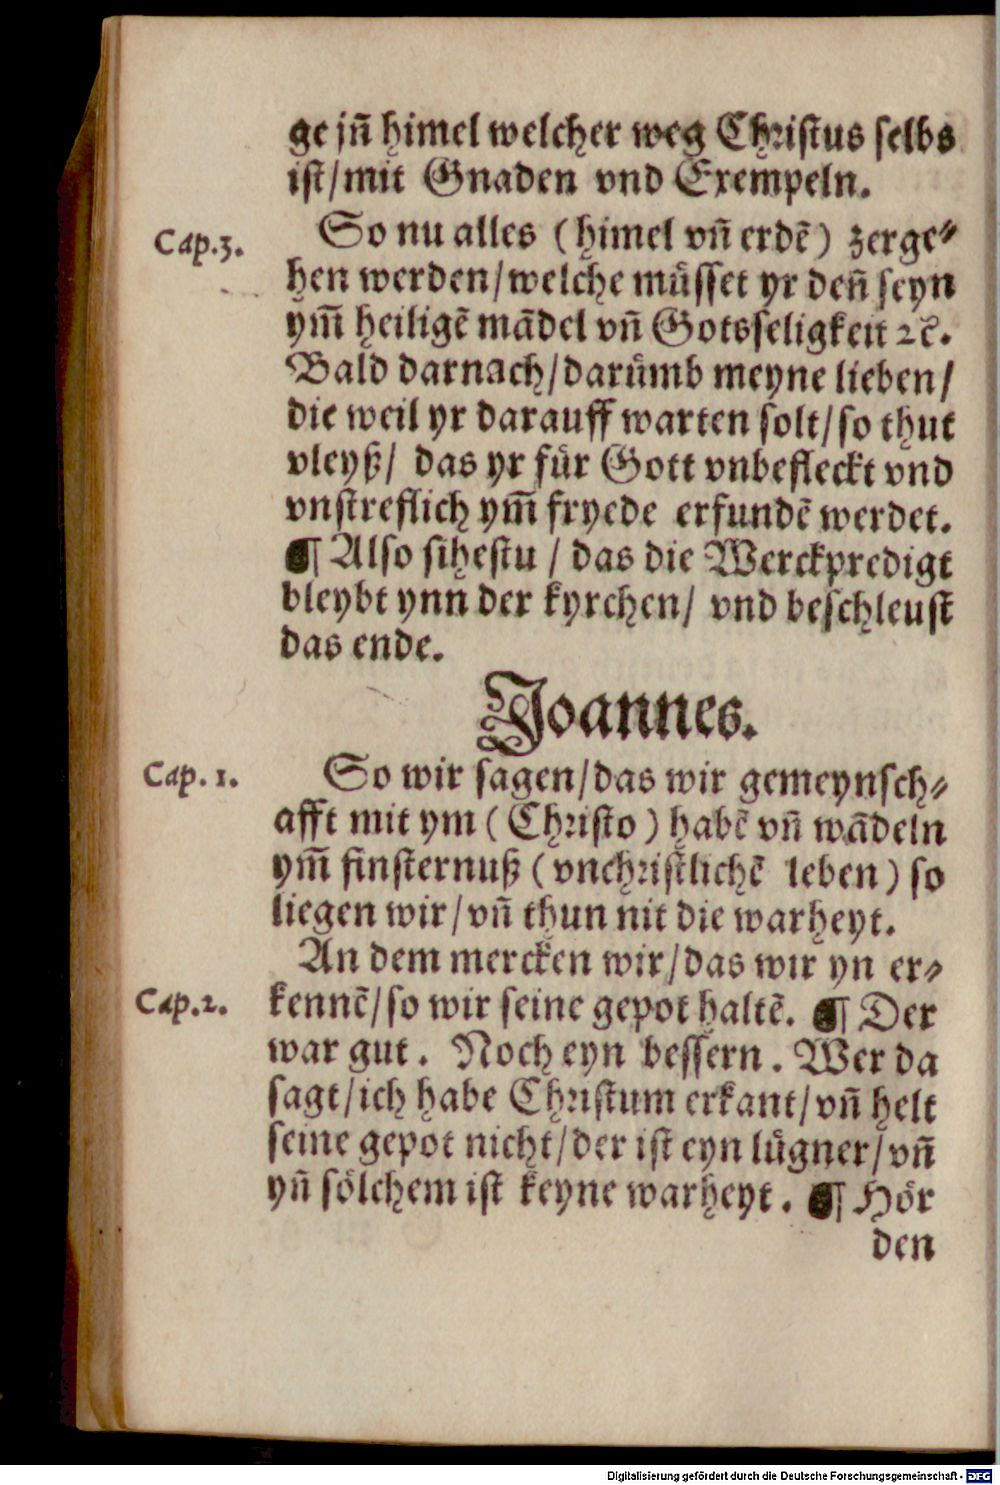 ge jñ himel welcher weg Christus selbs
ist/mit Gnaden vnd Exempeln.
Cap.3.
So nu alles (himel vñ erdē) zerge⸗
hen werden/welche müsset yr deñ seyn
ym̄ heiligē wādel vñ Gotsseligkeit ⁊c̄.
Bald darnach/darümb meyne lieben/
die weil yr darauff warten solt/so thut
vleyß/ das yr für Gott vnbefleckt vnd
vnstreflich ym̄ fryede erfundē werdet.
¶ Also sihestu / das die Werckpredigt
bleybt ynn der kyrchen/ vnd beschleust
das ende.
Joannes.
Cap. 1.
So wir sagen/das wir gemeynsch⸗
afft mit ym (Christo) habē vñ wādeln
ym̄ finsternuß (vnchristlichē leben) so
liegen wir/vñ thun nit die warheyt.
An dem mercken wir/das wir yn er⸗
Cap.2.
kennē/so wir seine gepot haltē. ¶ Der
war gut. Noch eyn bessern. Wer da
sagt/ich habe Christum erkant/vñ helt
seine gepot nicht/der ist eyn lügner/vñ
yñ sölchem ist keyne warheyt. ¶ Hör
den
Digitalisierung gefördert durch die Deutsche Forschungsgemeinschaft - DFG